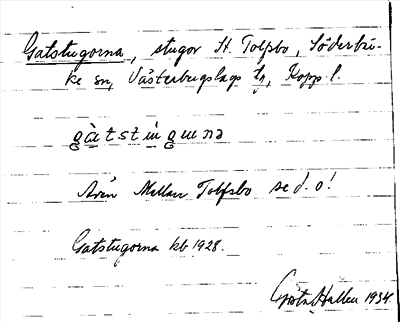 Gatstugorna, stugor St. Tolfsbo, Söderbär-
ke sn, Västerbergslags , Kopp. l.
Även Mellan Tolfsbo se d. o!
Gatstugorna kb 1928.
Göta Hallén 1934